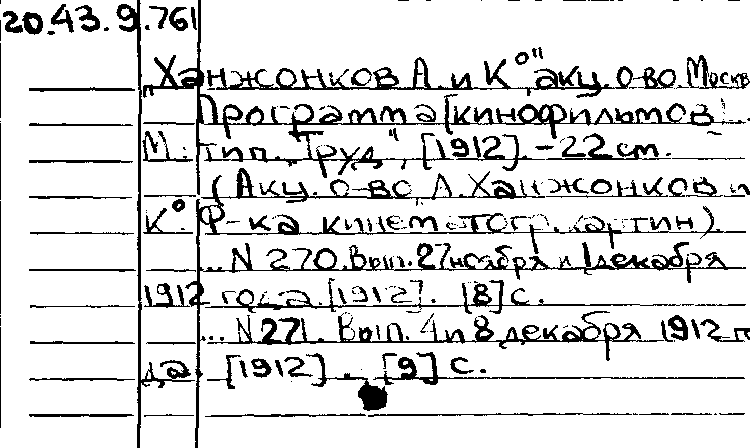 20.43.9.761
„Ханжонков А. и К°", акц. о-во. Москв
Программа [кинофильмов]...
М.: тип. „Труд", [1912]. - 22 cm.
(Акц. о-во „А. Ханжонков и
К°. Ф-ка кинематогр. картин).
...N 270. Вып. 27 ноября и 1 декабря
1912 года. [1912]. [8] с.
...N 271. Вып. 4 и 8 декабря 1912 г
да. [1912]. [9] с.